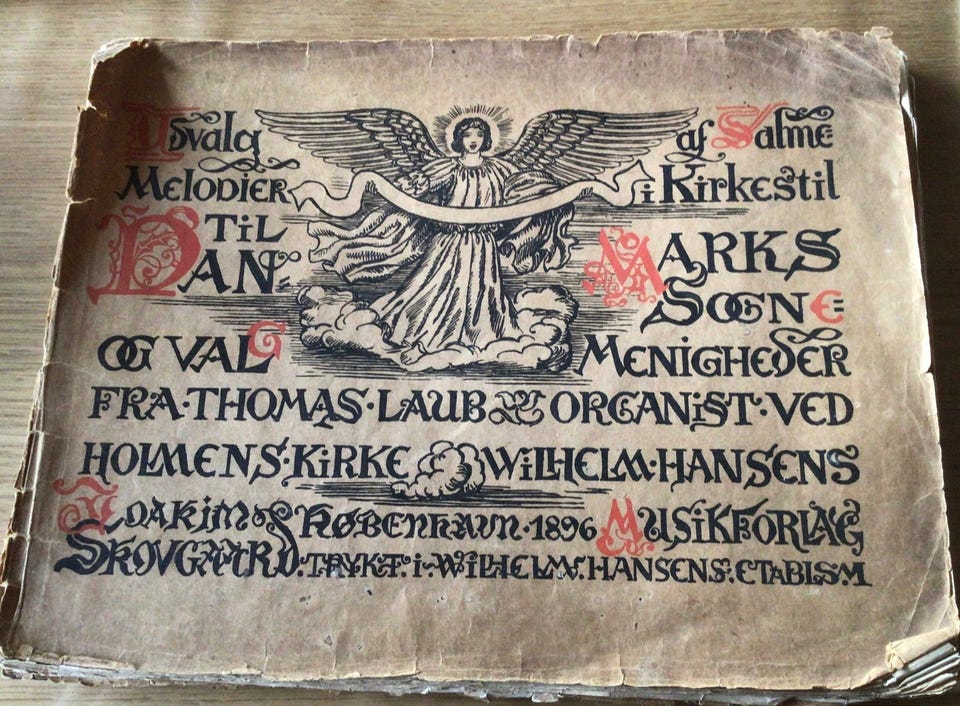 Udvalg af Salme
Melodier i Kirkestil
TiL
DAN= MARKS
SOGNE=
OG VALG MENiGHEDER
FRA·THOMAS·LAUB ORGANiST·VED
HOLMENS·KiRKE WiLHELM·HANSENS
JOAKiM KØBENHAVN·1896 MUSiKFORLAG
SKOVGAARD.TRYKT:i·WiLHELM.HANSENS:ETABLSM